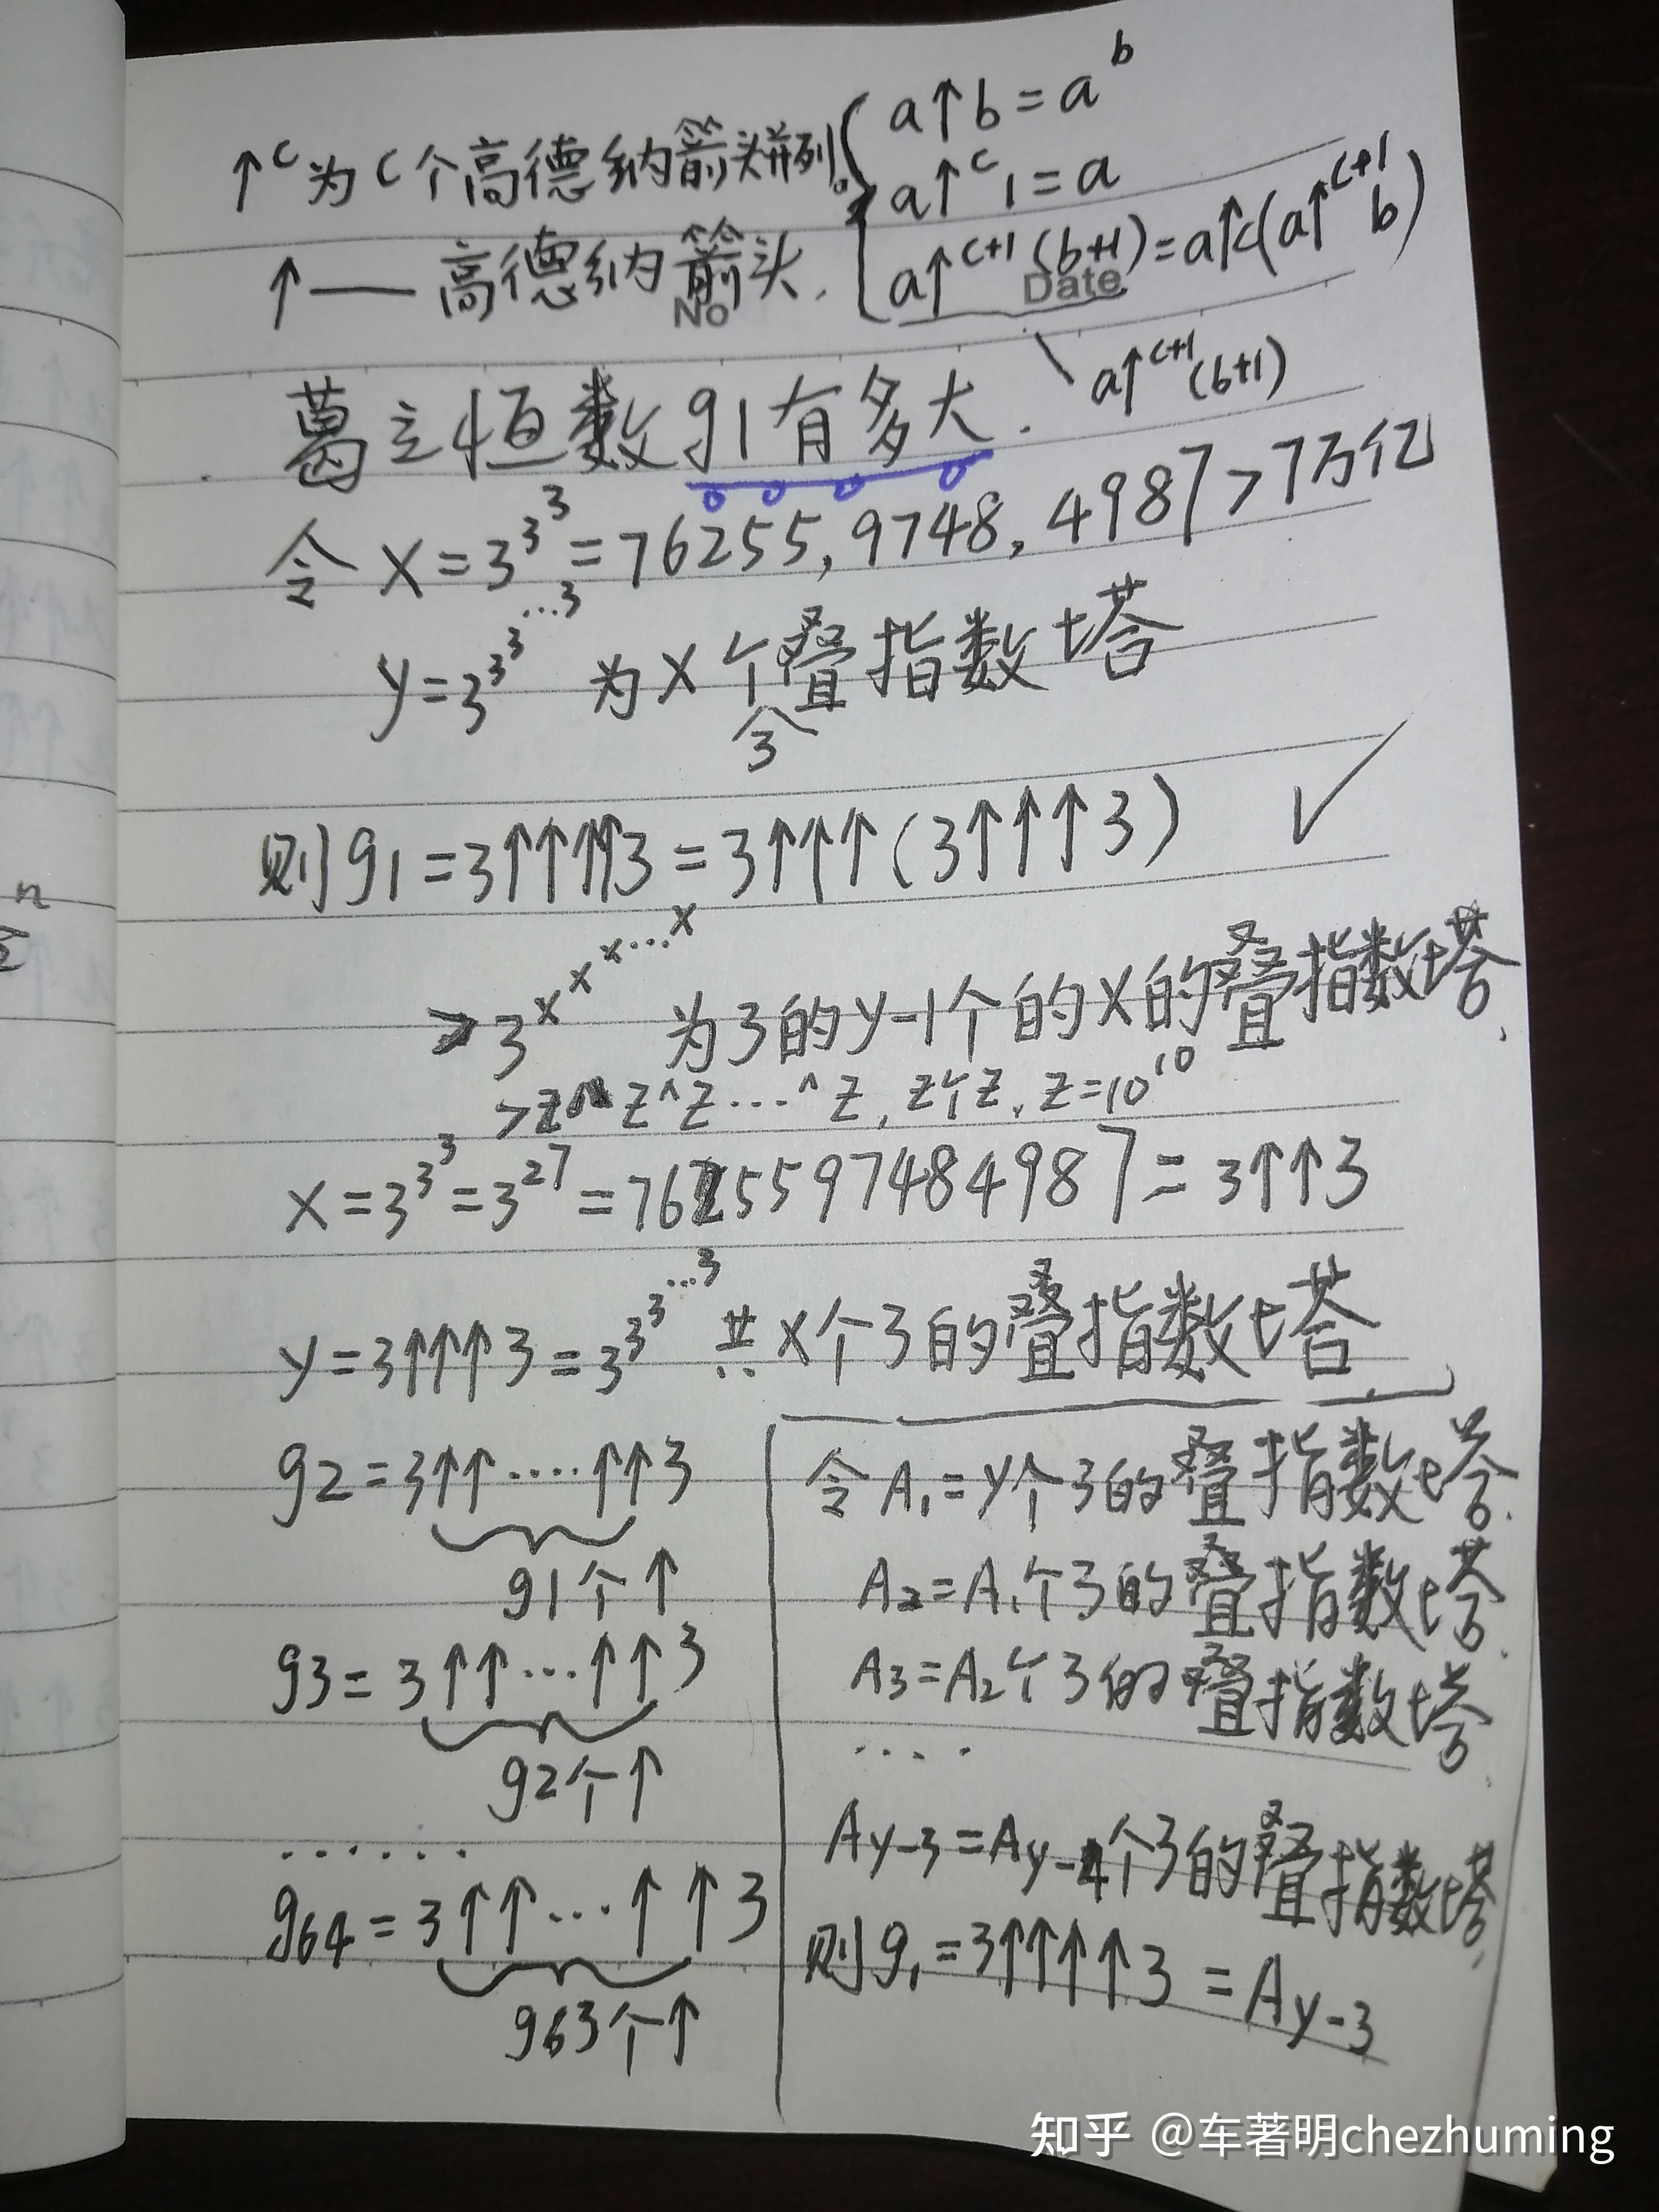 ↑ᶜ为c个高德纳箭头排列。 a↑b=aᵇ
a↑ᶜ1=a
↑——高德纳箭头. a↑ᶜ⁺¹(b+1)=a↑c(a↑ᶜ⁺¹b)
No Date
a↑ᶜ⁺¹(b+1)
葛立恒数g1有多大.
令 x=3^3^3=76255,9748,4987>7万亿
y=3^3^3^…3 为x个叠指数塔
个
3
则g1=3↑↑↑↑3=3↑↑↑(3↑↑↑3) ✓
>3^x^x^x^…x 为3的y-1个的x的叠指数塔.
>z^z^z…^z, z个z, z=10¹⁰
x=3^3^3=3²⁷=7625597484987=3↑↑3
y=3↑↑↑3=3^3^3^…3 共x个3的叠指数塔
g2=3↑↑....↑↑3
g1个↑
g3=3↑↑...↑↑3
g2个↑
......
g64=3↑↑...↑↑3
g63个↑
令A₁=y个3的叠指数塔.
A₂=A₁个3的叠指数塔.
A₃=A₂个3的叠指数塔.
....
Ay-3=Ay-4个3的叠指数塔.
则g₁=3↑↑↑↑3=Ay-3
n
知乎 @车著明chezhuming